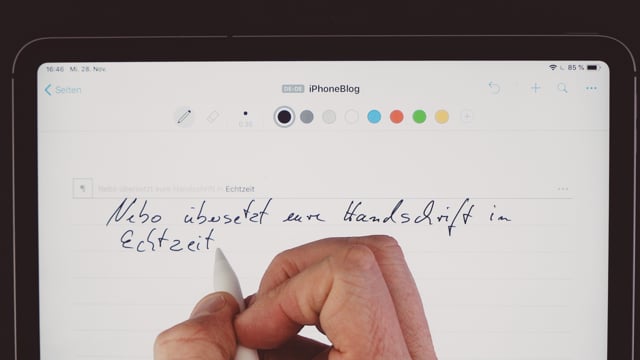 16:46 Mi. 28. Nov. 85 %
Seiten DE-DE iPhoneBlog
0.35
Nebo übersetzt eure Handschrift in Echtzeit
Nebo übersetzt eure Handschrift in
Echtzeit